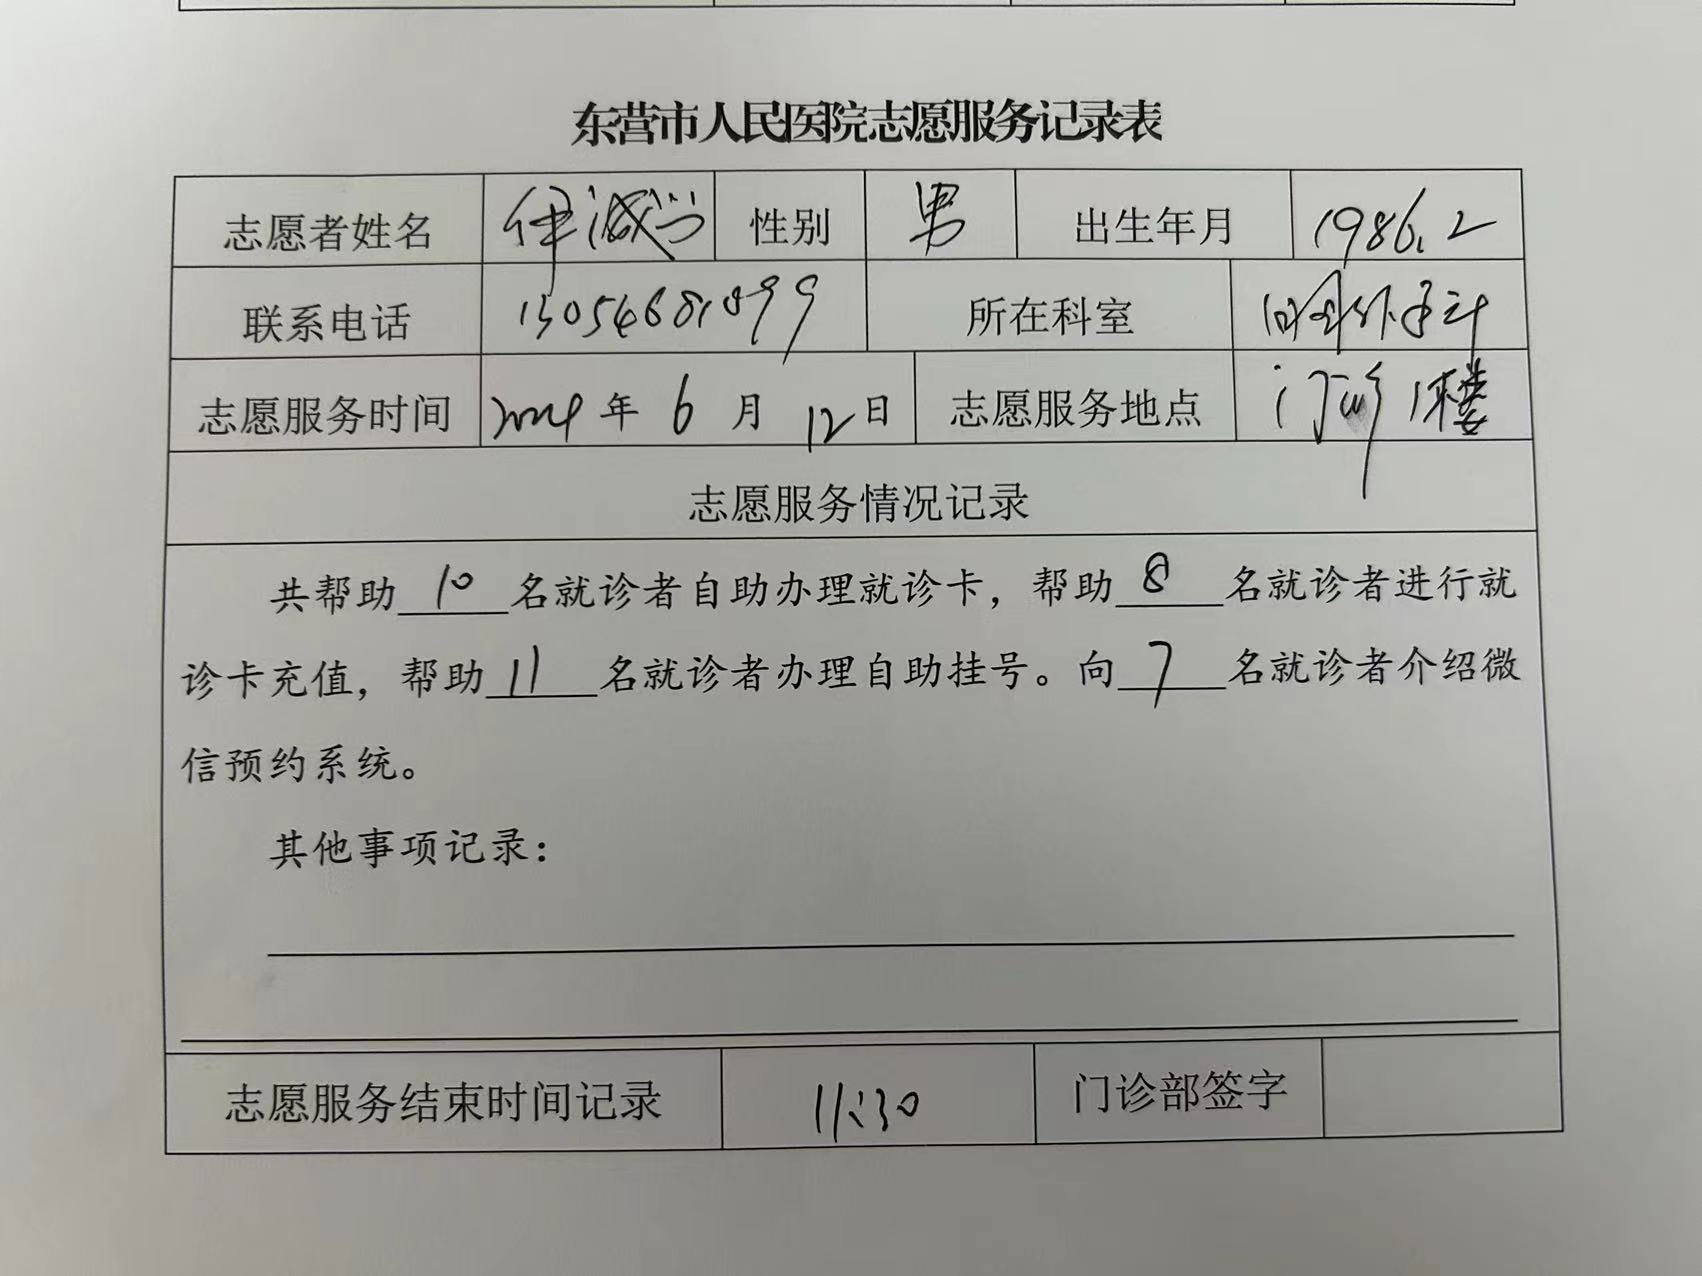 东营市人民医院志愿服务记录表
志愿者姓名 性别 男 出生年月 1986.2
联系电话 13054681899 所在科室
志愿服务时间 2024年 6 月 12日 志愿服务地点 门诊1楼
志愿服务情况记录
共帮助10名就诊者自助办理就诊卡，帮助8名就诊者进行就
诊卡充值，帮助11名就诊者办理自助挂号。向7名就诊者介绍微
信预约系统。
其他事项记录：
志愿服务结束时间记录 11:30 门诊部签字